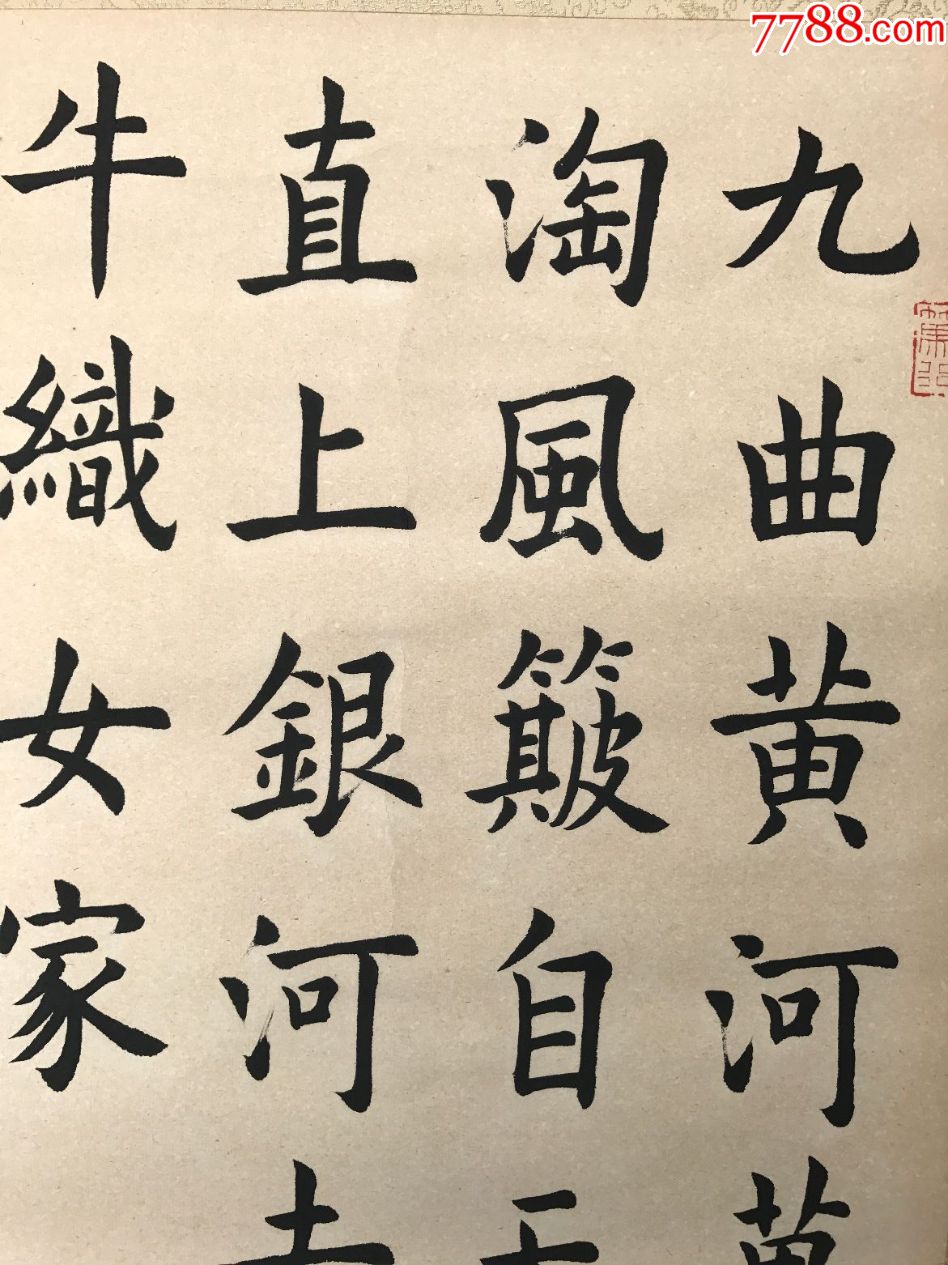 7788.com
九曲黄河萬
淘風簸自天
直上銀河去
牛織女家